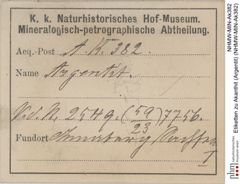 K. k. Naturhistorisches Hof-Museum.
Mineralogisch-petrographische Abtheilung.
Acq.-Post A. k. 382
Name Argentit.
2549. (59/23) 7756.
Fundort Annaberg
NHMW-MIN-Ak382
Etiketten zu Akanthit (Argentit) (NHMW-MIN-Ak382)